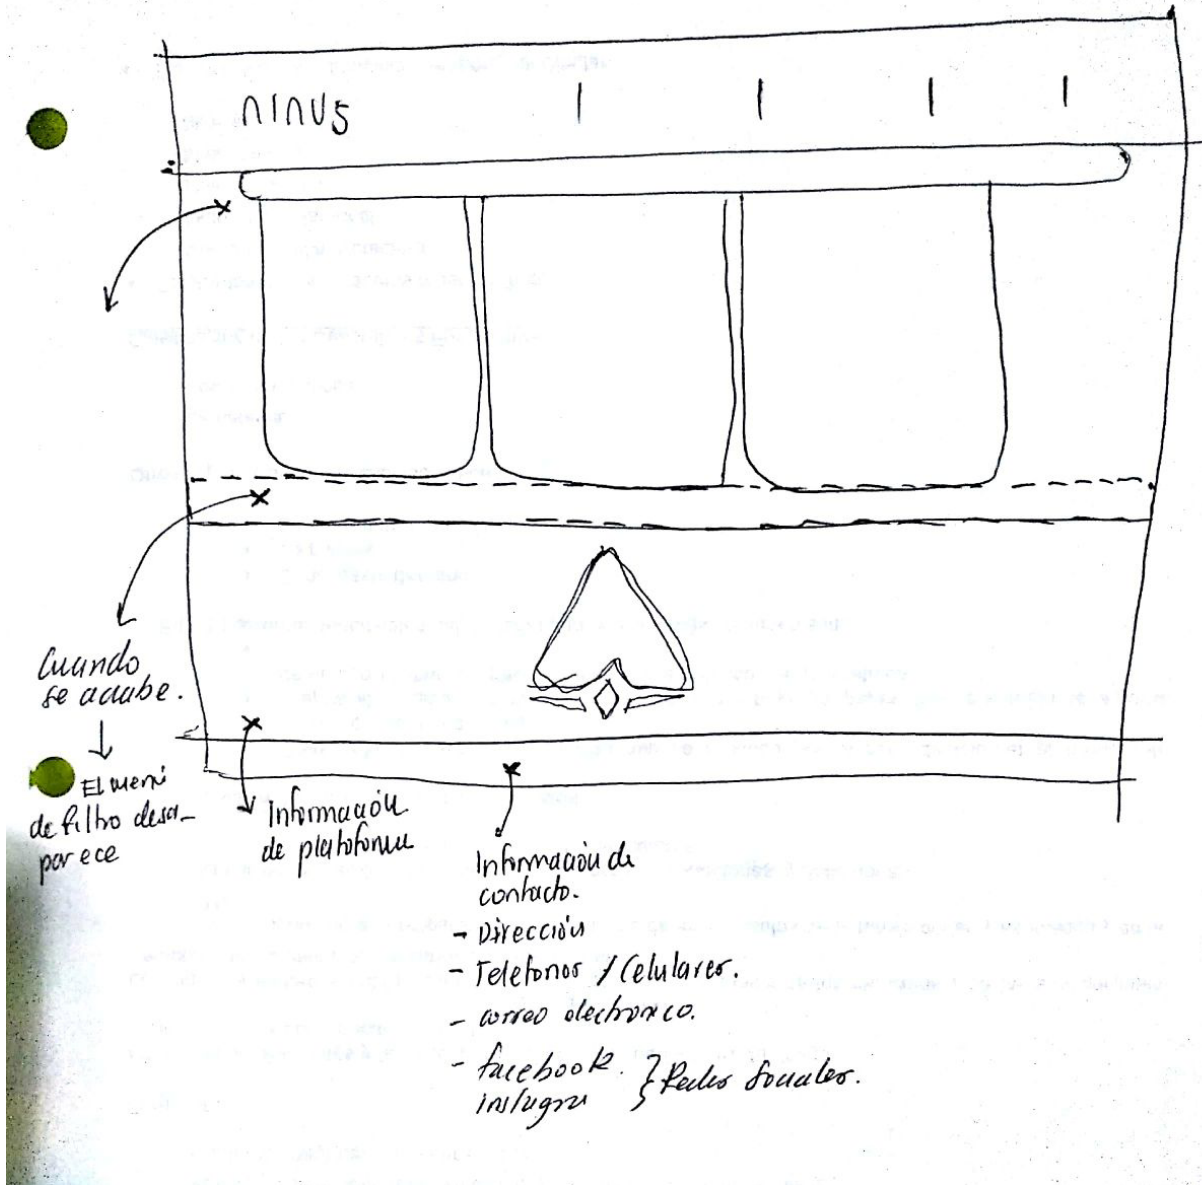 ninus
Cuando
se acabe.
El menú
de filtro desa-
parece
Información
de plataforma
Información de
contacto.
- Dirección
- Telefonos / Celulares.
- correo electronico.
- facebook. } Redes Sociales.
instagram